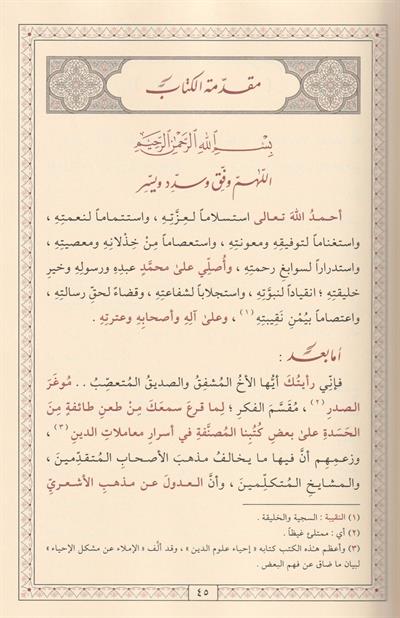 مقدّمة الكتاب
بِسْمِ اللهِ الرَّحْمٰنِ الرَّحِيْمِ
اللّٰهمّ وفّق وسدّد ويسّر
أحمدُ اللهَ تعالى استسلاماً لعِزَّتِهِ ، واستتماماً لنعمتِهِ ،
واستغناماً لتوفيقِهِ ومعونتِهِ ، واستعصاماً مِنْ خِذْلانِهِ ومعصيتِهِ ،
واستدراراً لسوابغِ رحمتِهِ ، وأُصلِّي علىٰ محمَّدٍ عبدِهِ ورسولِهِ وخيرِ
خليقتِهِ ؛ انقياداً لنبوَّتِهِ ، واستجلاباً لشفاعتِهِ ، وقضاءً لحقِّ رسالتِهِ ،
واعتصاماً بيُمْنِ نَقِيبتِهِ (١) ، وعلىٰ آلِهِ وأصحابِهِ وعترتِهِ .
أما بعد :
فإنِّي رأيتُكَ أيُّها الأخُ المُشفِقُ والصديقُ المُتعصِّب .. مُوغَرَ
الصدرِ (٢) ، مُقَسَّمَ الفكرِ ؛ لِما قرعَ سمعَكَ مِنْ طعنِ طائفةٍ مِنَ
الحَسَدةِ علىٰ بعضِ كُتُبِنا المصنَّفةِ في أسرارِ معاملاتِ الدينِ (٣) ،
وزعمِهِم أنَّ فيها ما يخالفُ مذهبَ الأصحابِ المتقدِّمينَ ،
والمشايخِ المتكلِّمينَ ، وأنَّ العدولَ عن مذهبِ الأشعريِّ
(١) النقيبة : السجية والخليقة .
(٢) أي : ممتلئ غيظاً .
(٣) وأعظم هذه الكتب كتابه « إحياء علوم الدين » ، وقد ألَّف « الإملاء عن مشكل الإحياء »
لبيان ما ضاق عن فهم البعض .
٤٥